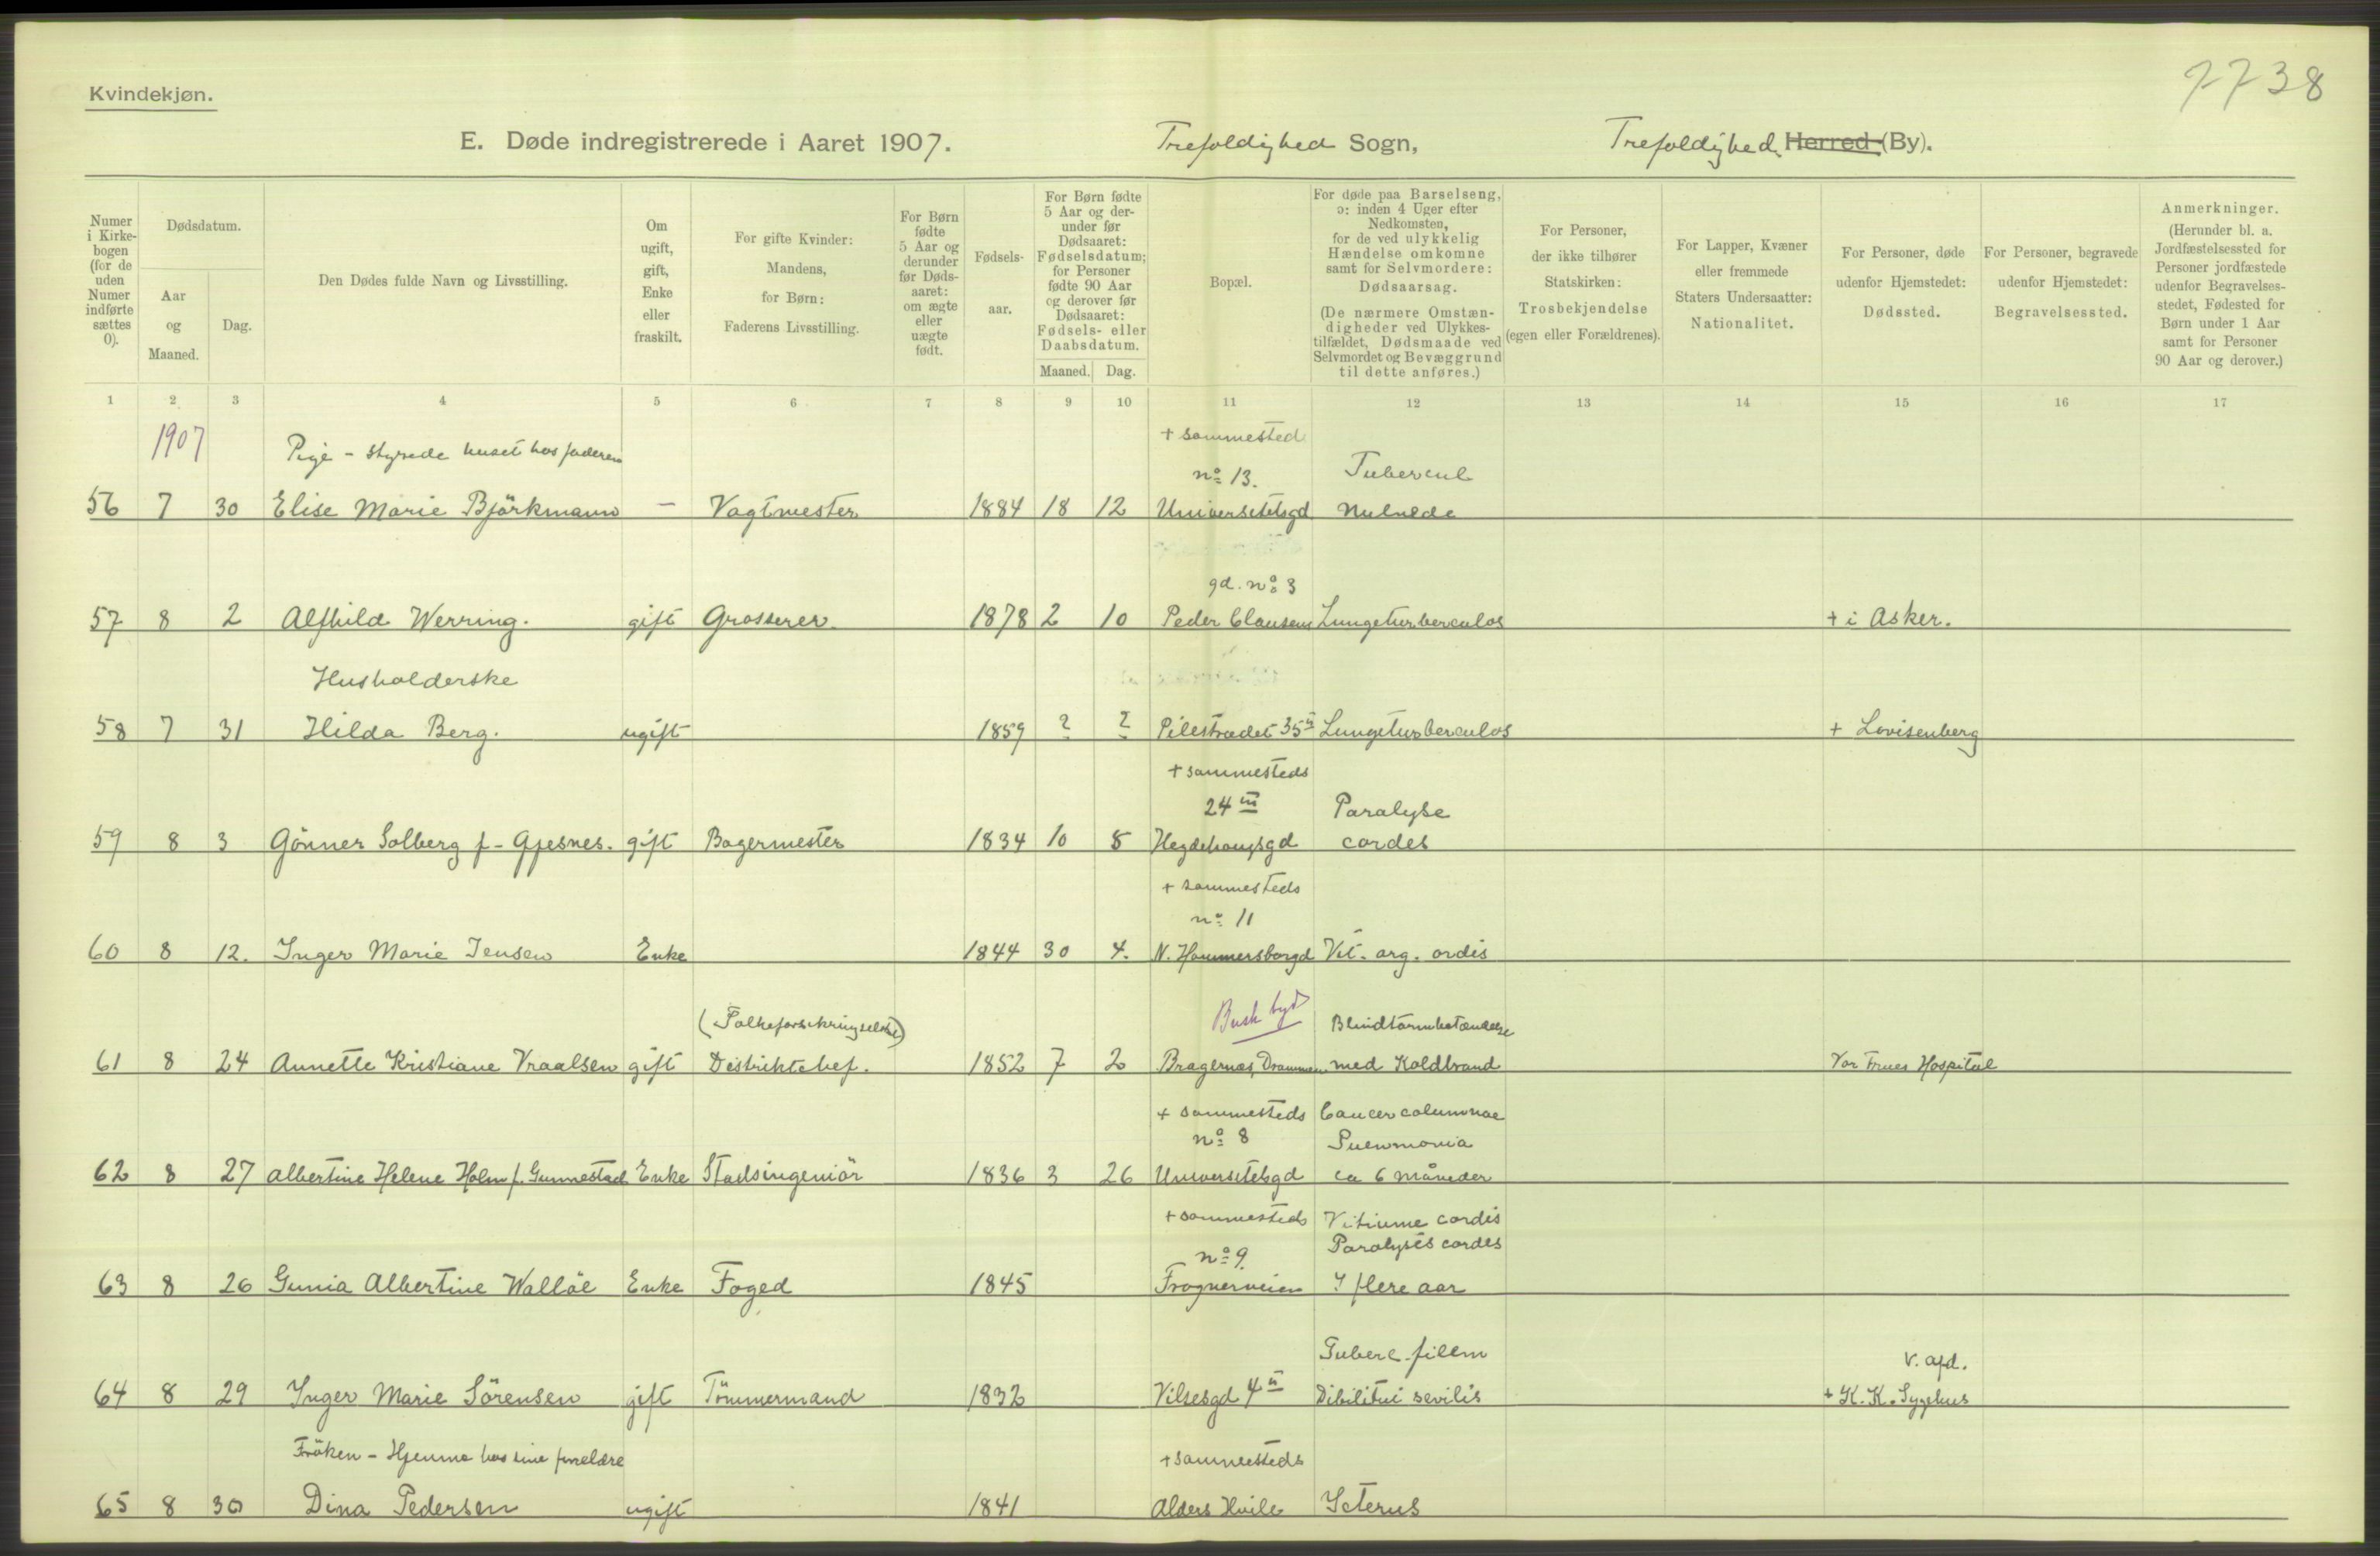 7738
Kvindekjøn.
E. Døde indregistrerede i Aaret 1907. Trefoldighed Sogn, Trefoldighed Herred (By).
Numer i Kirke-bogen (for de uden Numer indførte sættes 0).
Dødsdatum.
Aar og Maaned.
Dag.
Den Dødes fulde Navn og Livsstilling.
Om ugift, gift, Enke eller fraskilt.
For gifte Kvinder: Mandens, for Børn: Faderens Livsstilling.
For Børn fødte 5 Aar og derunder før Døds-aaret: om ægte eller uægte født.
Fødsels-aar.
For Børn fødte 5 Aar og der-under før Dødsaaret: Fødselsdatum; for Personer fødte 90 Aar og derover før Dødsaaret: Fødsels- eller Daabsdatum.
Maaned. Dag.
Bopæl.
For døde paa Barselseng, ɔ: inden 4 Uger efter Nedkomsten, for de ved ulykkelig Hændelse omkomne samt for Selvmordere: Dødsaarsag.
(De nærmere Omstæn-digheder ved Ulykkes-tilfældet, Dødsmaade ved Selvmordet og Bevæggrund til dette anføres.)
For Personer, der ikke tilhører Statskirken: Trosbekjendelse (egen eller Forældrenes).
For Lapper, Kvæner eller fremmede Staters Undersaatter: Nationalitet.
For Personer, døde udenfor Hjemstedet: Dødssted.
For Personer, begravede udenfor Hjemstedet: Begravelsessted.
Anmerkninger. (Herunder bl. a. Jordfæstelsessted for Personer jordfæstede udenfor Begravelses-stedet, Fødested for Børn under 1 Aar samt for Personer 90 Aar og derover.)
1 2 3 4 5 6 7 8 9 10 11 12 13 14 15 16 17
1907
Pige - styrede huset hos faderen
+ sammested
no 13. Tubercul
56 7 30 Elise Marie Björkmann — Vagtmester 1884 18 12 Universitetsgd
gd. no 3
57 8 2 Alfhild Werring. gift Grosserer 1878 2 10 Peder Clausens Lungeturberculos + i Asker.
Husholderske
58 7 31 Hilda Berg. ugift 1859 ? ? Pilestrædet 35 II Lungeturberculos + Lovisenberg
+ sammesteds
24 III Paralyse
59 8 3 Gönner Solberg f - Gjesnes. gift Bagermester 1834 10 8 Hegdehaugsgd cordes
+ sammesteds
no 11
60 8 12. Inger Marie Jensen Enke 1844 30 4. N. Hammersborgd Vit. org. ordis
(Folkeforsikringselskab) Busk byd Blindtarmbetændelse
61 8 24 Annette Kristiane Vraalsen gift Distriktchef. 1852 7 2 Bragernæs, Drammen med Koldbrand Vor Frues Hospital
+ sammesteds Cancer columnae
no 8 Pneumonia
62 8 27 Albertine Helene Holm f. Gunnestad Enke Stadsingeniör 1836 3 26 Universitetsgd ca 6 måneder
+ sammesteds Vitiume cordis
no 9. Paralysés cordes
63 8 26 Gunia Albertine Wallöe Enke Foged 1845 Frognerveien I flere aar
Tuberc.
V. afd.
64 8 29 Inger Marie Sörensen gift Tömmermand 1832 Vilsesgd 4 II Dibilitui sevilis + K. K. Sygehus
Fröken - Hjemme hos sine forældre
+ sammesteds
65 8 30 Dina Pedersen ugift 1841 Alders Hvile Icterus